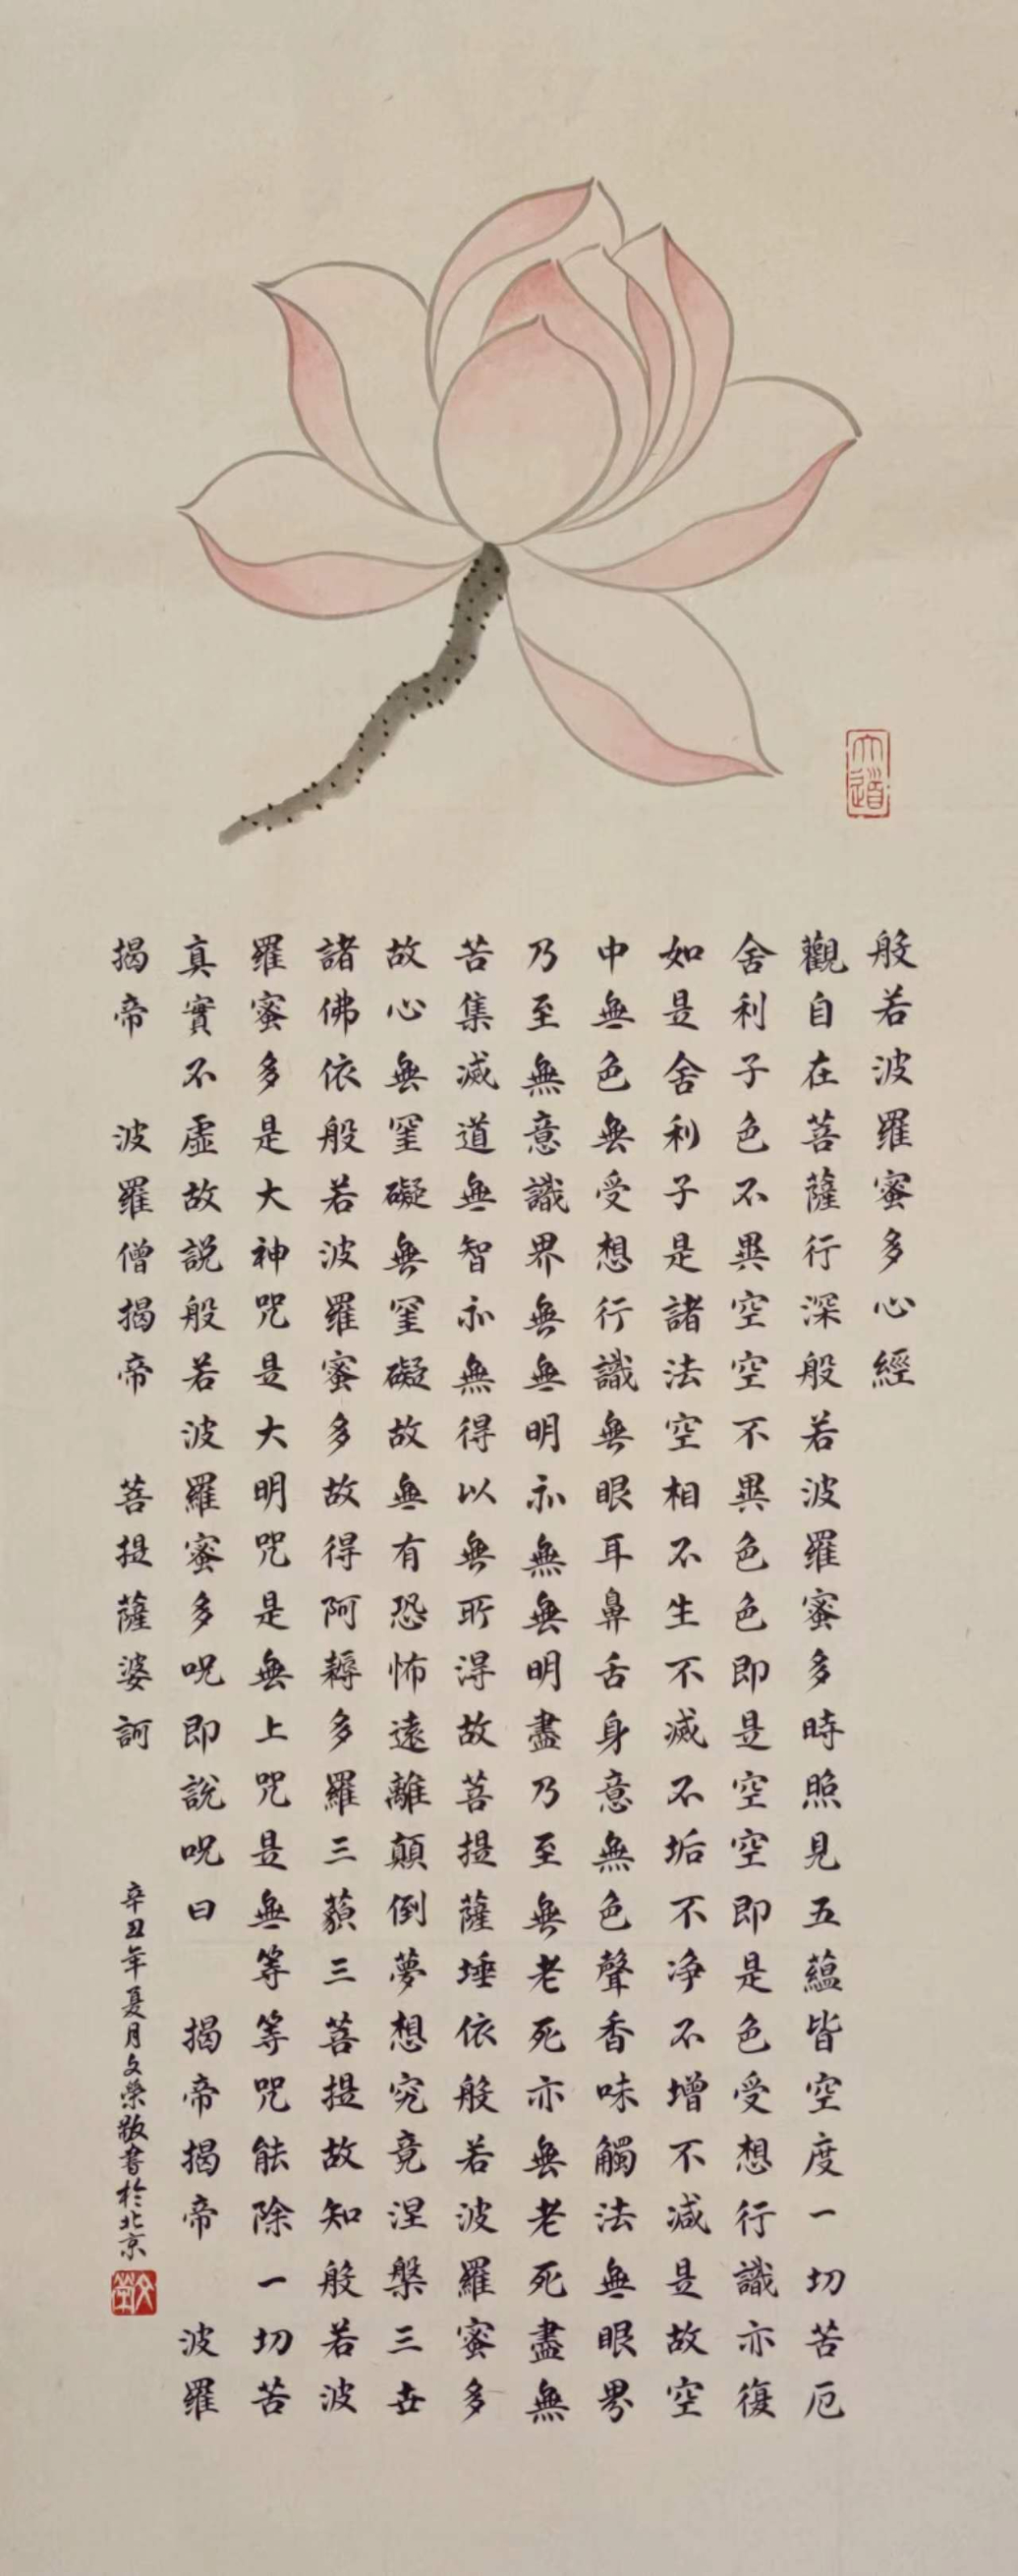 大道
般若波羅蜜多心經
觀自在菩薩行深般若波羅蜜多時照見五蘊皆空度一切苦厄
舍利子色不異空空不異色色即是空空即是色受想行識亦復
如是舍利子是諸法空相不生不滅不垢不净不增不減是故空
中無色無受想行識無眼耳鼻舌身意無色聲香味觸法無眼界
乃至無意識界無無明亦無無明盡乃至無老死亦無老死盡無
苦集滅道無智亦無得以無所得故菩提薩埵依般若波羅蜜多
故心無罣礙無罣礙故無有恐怖遠離顛倒夢想究竟涅槃三世
諸佛依般若波羅蜜多故得阿耨多羅三藐三菩提故知般若波
羅蜜多是大神咒是大明咒是無上咒是無等等咒能除一切苦
真實不虛故説般若波羅蜜多呪即說呪曰 揭帝揭帝 波羅
揭帝 波羅僧揭帝 菩提薩婆訶
辛丑年夏月文榮敬書於北京
文榮